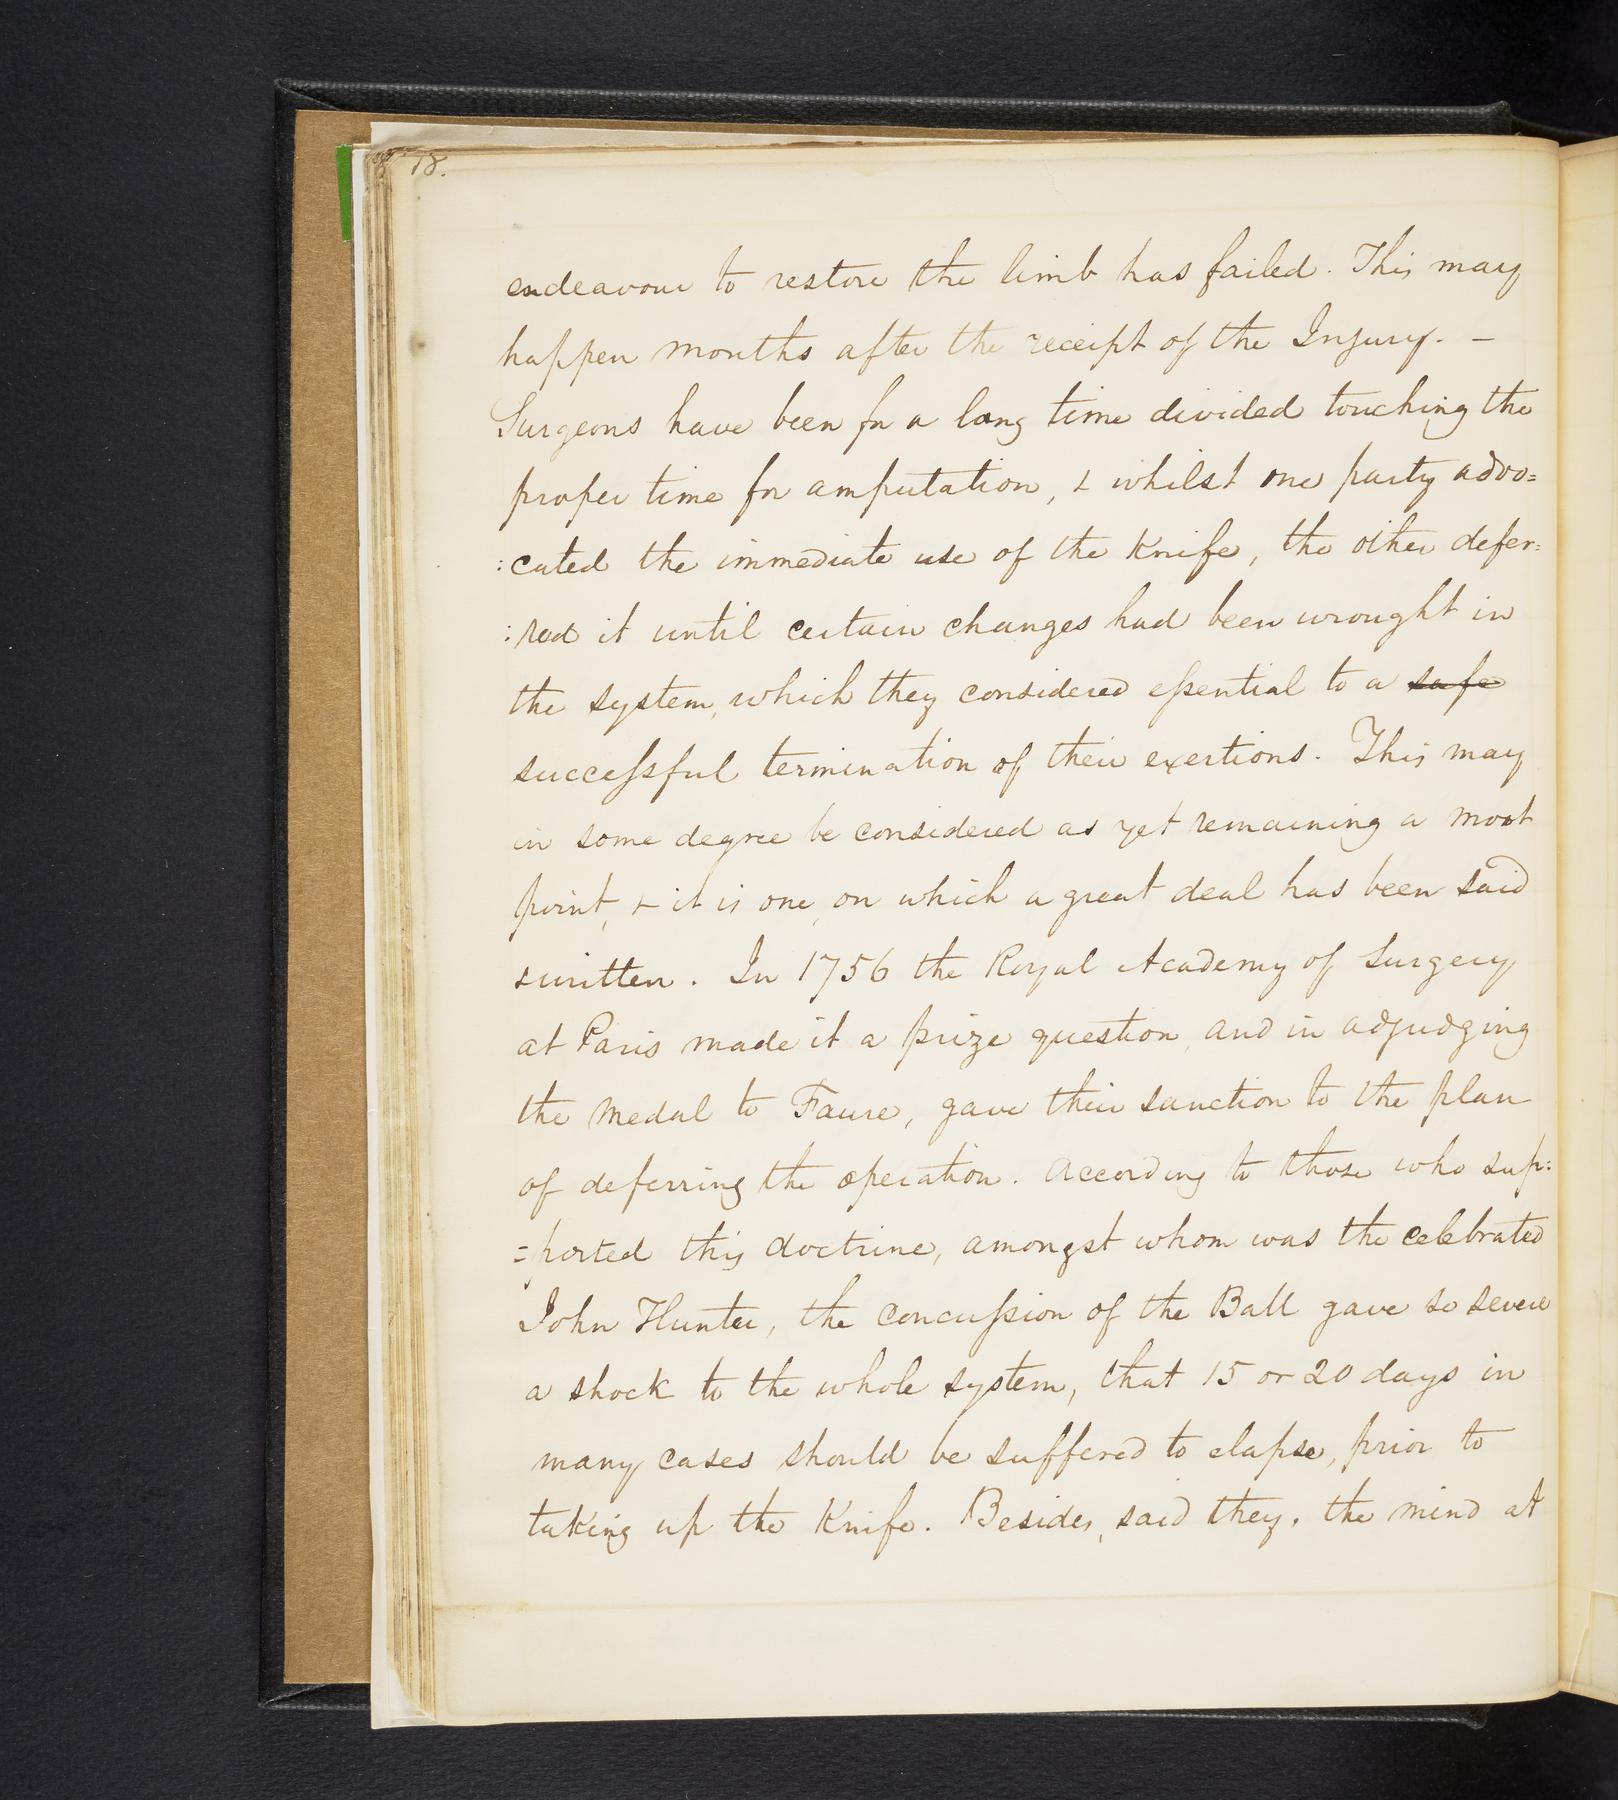 18.
endeavour to restore the limb has failed. This may
happen months after the receipt of the Injury. –
Surgeons have been for a long time divided touching the
proper time for amputation, & whilst one party advo=
:cated the immediate use of the Knife, the other defer=
:red it until certain changes had been wrought in
the system, which they considered eſsential to a safe
succeſsful termination of their exertions. This may
in some degree be considered as yet remaining a moot
point, & it is one, on which a great deal has been said
& written. In 1756 the Royal Academy of Surgery
at Paris made it a prize question, and in adjudging
the Medal to Faure, gave their sanction to the plan
of deferring the operation. According to those who sup=
=ported this doctrine, amongst whom was the celebrated
John Hunter, the concuſsion of the Ball gave so severe
a shock to the whole system, that 15 or 20 days in
many cases should be suffered to elapse, prior to
taking up the Knife. Besides, said they, the mind at